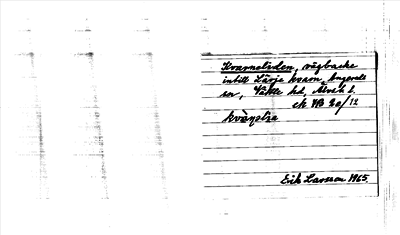 Kvarneliden, vägbacke
intill Lärje kvarn, Angereds
sn, Vättle hd, Älvsb l.
ek VB 20/12
Erik Larsson 1965